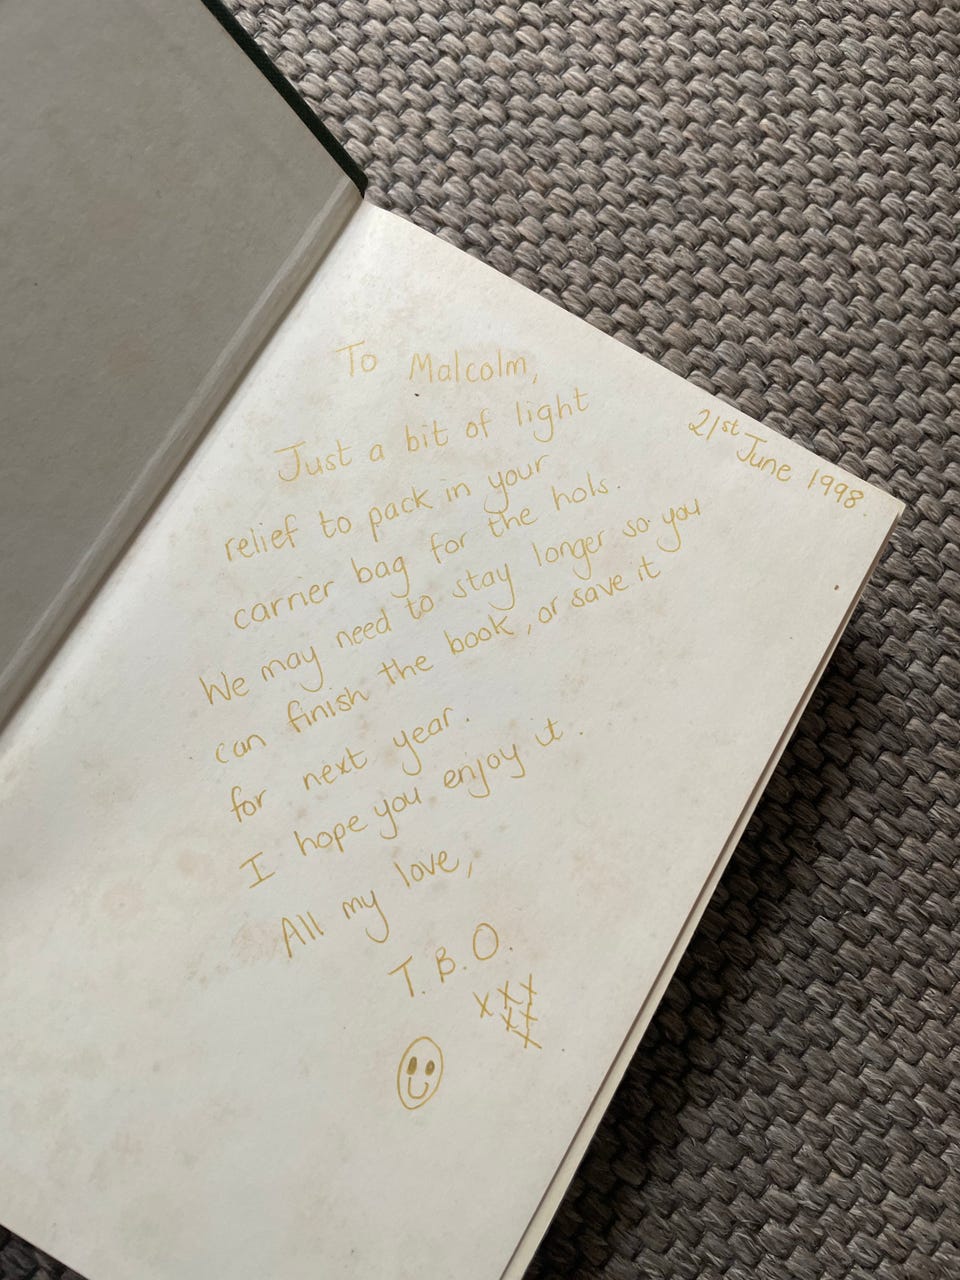 21st June 1998.
To Malcolm,
Just a bit of light
relief to pack in your
carrier bag for the hols.
We may need to stay longer so you
can finish the book, or save it
for next year.
I hope you enjoy it.
All my love,
T.B.O.
xxx
xx
x